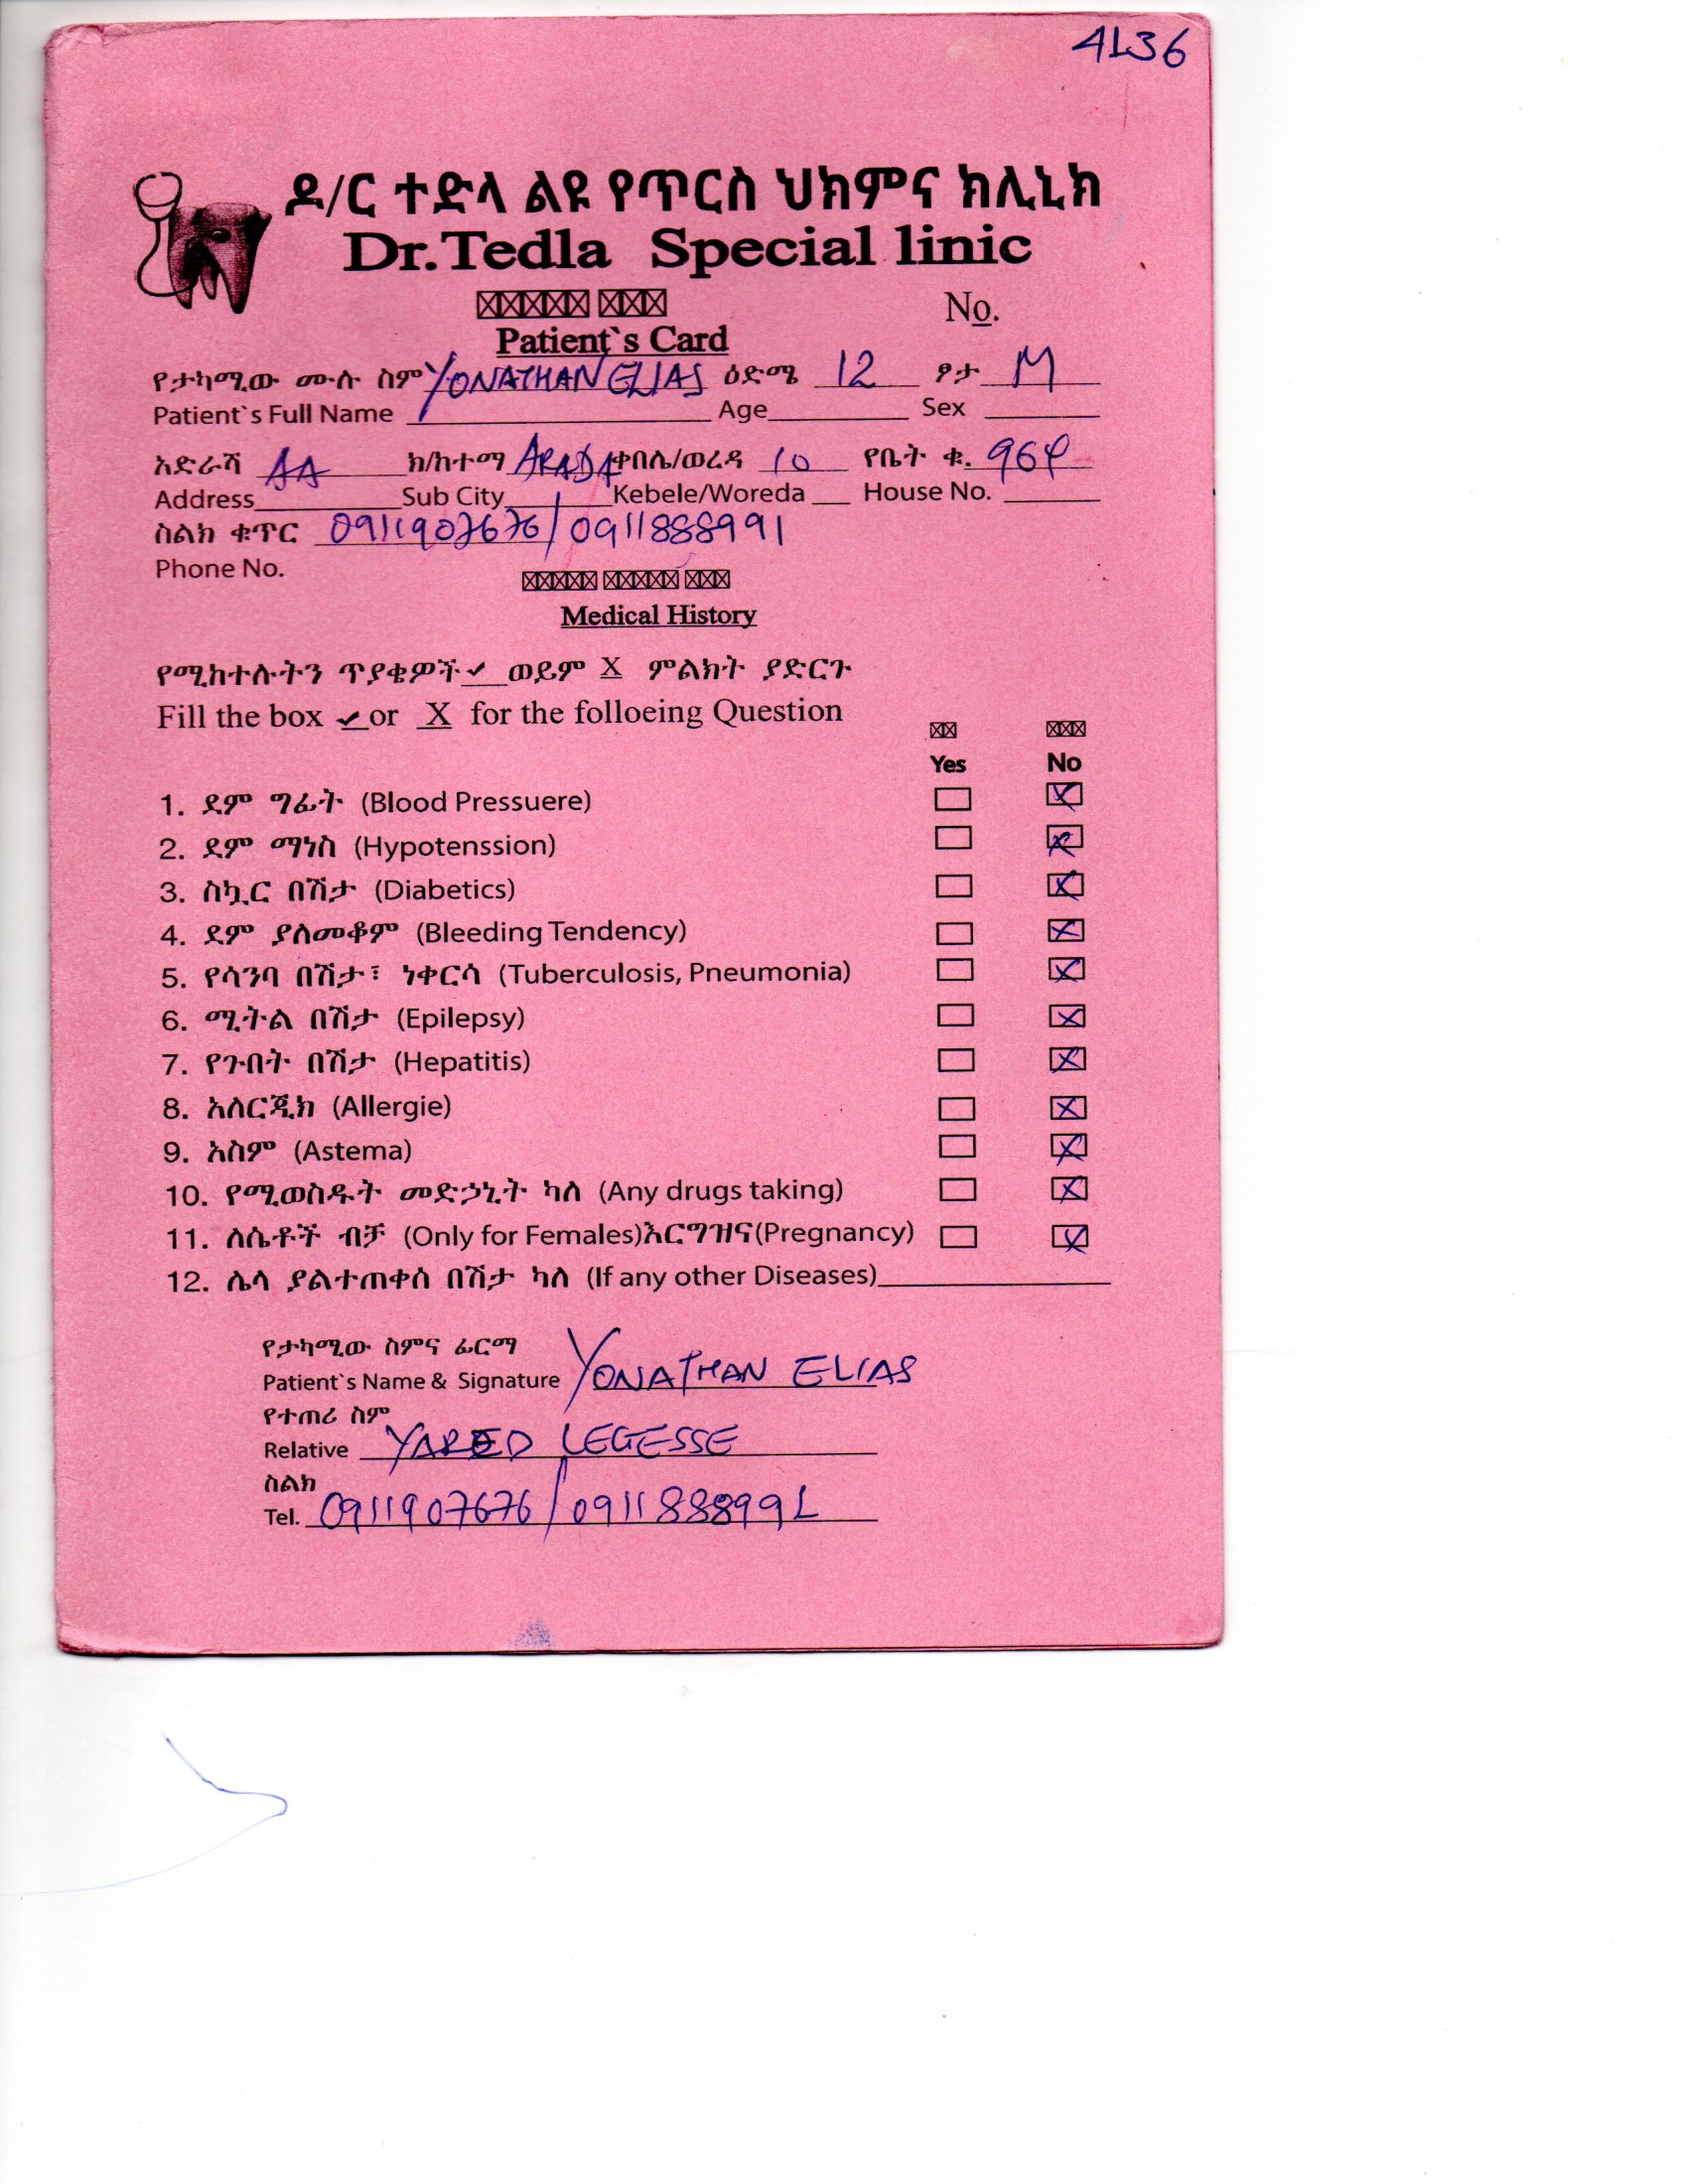 4136
ዶ/ር ተድላ ልዩ የጥርስ ህክምና ክሊኒክ
Dr.Tedla Special linic
No.
Patient`s Card
የታካሚው ሙሉ ስም YONATHAN ELIAS ዕድሜ 12 ፆታ M
Patient`s Full Name Age Sex
አድራሻ AA ክ/ከተማ ARADA ቀበሌ/ወረዳ 10 የቤት ቁ. 964
Address Sub City Kebele/Woreda House No.
ስልክ ቁጥር 0911907676/0911888991
Phone No.
Medical History
የሚከተሉትን ጥያቄዎች ✓ ወይም X ምልክት ያድርጉ
Fill the box ✓ or X for the folloeing Question
Yes No
1. ደም ግፊት (Blood Pressuere)
2. ደም ማነስ (Hypotenssion)
3. ስኳር በሽታ (Diabetics)
4. ደም ያለመቆም (Bleeding Tendency)
5. የሳንባ በሽታ፣ ነቀርሳ (Tuberculosis, Pneumonia)
6. ሚትል በሽታ (Epilepsy)
7. የጉበት በሽታ (Hepatitis)
8. አለርጂክ (Allergie)
9. አስም (Astema)
10. የሚወስዱት መድኃኒት ካለ (Any drugs taking)
11. ለሴቶች ብቻ (Only for Females)እርግዝና(Pregnancy)
12. ሌላ ያልተጠቀሰ በሽታ ካለ (If any other Diseases)
የታካሚው ስምና ፊርማ
Patient`s Name & Signature YONATHAN ELIAS
የተጠሪ ስም
Relative YARED LEGESSE
ስልክ
Tel. 0911907676/0911888991